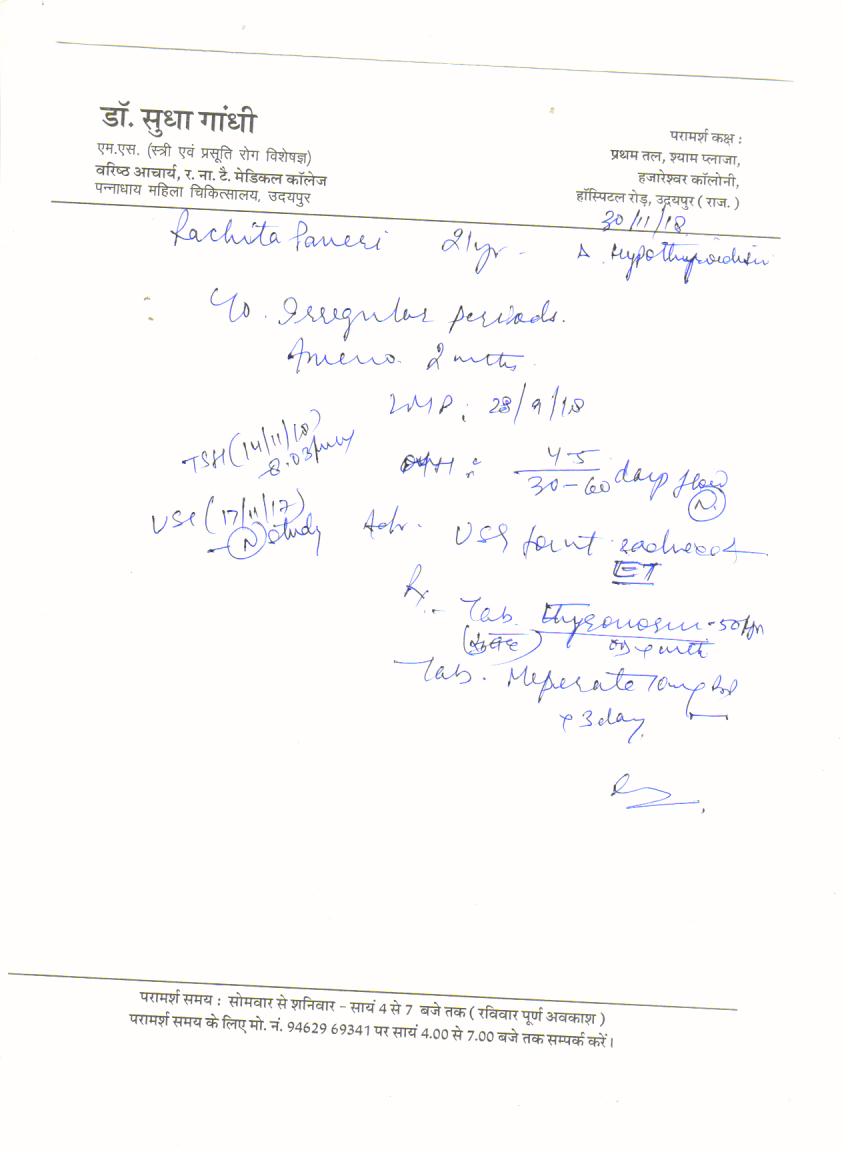 डॉ. सुधा गांधी
एम.एस. (स्त्री एवं प्रसूति रोग विशेषज्ञ)
वरिष्ठ आचार्य, र. ना. टै. मेडिकल कॉलेज
पन्नाधाय महिला चिकित्सालय, उदयपुर
परामर्श कक्ष :
प्रथम तल, श्याम प्लाजा,
हजारेश्वर कॉलोनी,
हॉस्पिटल रोड़, उदयपुर ( राज. )
30/11/18
Rachita Paneri 21yr.
Δ Hypothyroidism
C/o. Irregular periods.
Ameno. 2 mths.
LMP: 28/9/18
TSH (14/11/18)
8.03
4-5
30-60 days flow
N
USG (17/11/17)
N study
Adv. USG for
ET
Rx.
Tab. Thyronorm - 50
Tab. Meperate 10mg
x 3 day
परामर्श समय : सोमवार से शनिवार - सायं 4 से 7 बजे तक ( रविवार पूर्ण अवकाश )
परामर्श समय के लिए मो. नं. 94629 69341 पर सायं 4.00 से 7.00 बजे तक सम्पर्क करें।